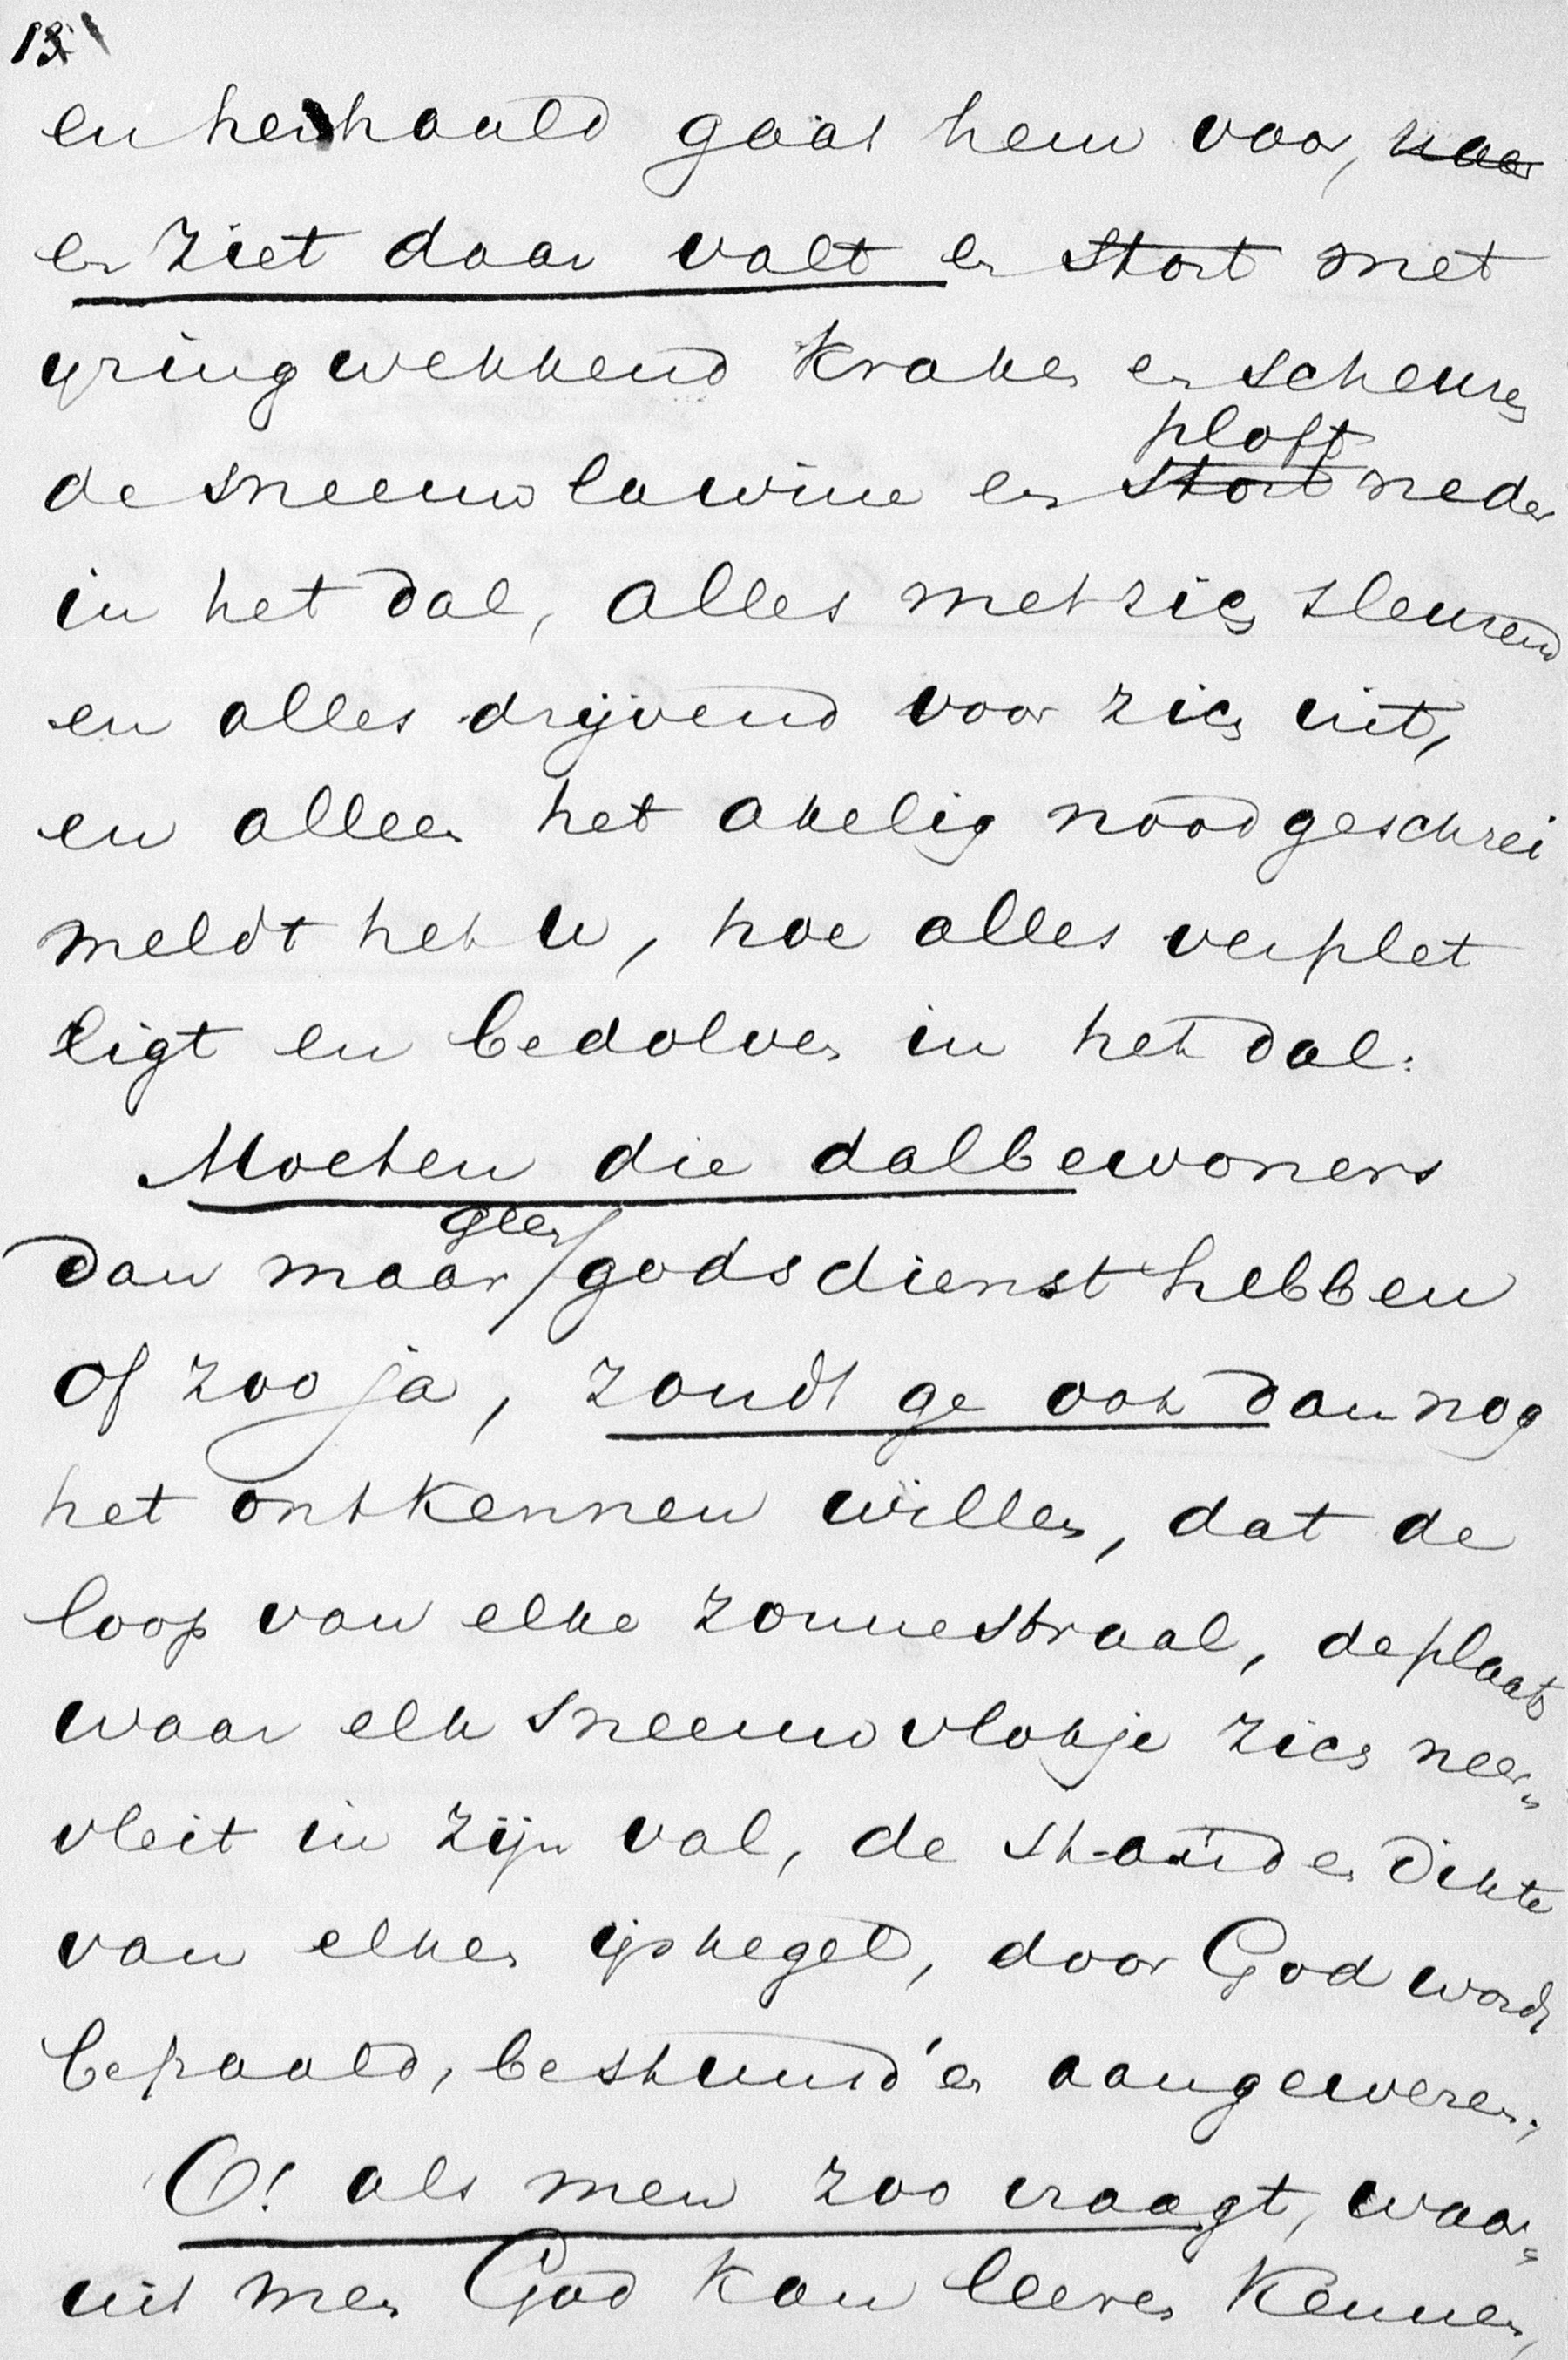 13
en herhaald gaat hem voor, naar
en ziet daar valt en stort met
ijzingwekkend kraken en scheuren
ploft
de sneeuwlawine en stort neder
in het dal, alles met zich sleurend
en alles drijvend voor zich uit,
en alleen het akelig noodgeschrei
meldt het u, hoe alles verplet
ligt en bedolven in het dal.
Moeten die dalbewoners
geen
dan maar godsdienst hebben
of zoo ja, zoudt ge ook dan nog
het ontkennen willen, dat de
loop van elke zonnestraal, de plaats
waar elk sneeuwvlokje zich neer=
vleit in zijn val, de stand en dikte
van elken ijskegel, door God wordt
bepaald, bestuurd en aangewezen,
O! als men zoo vraagt, waar=
uit men God kan leeren kennen,